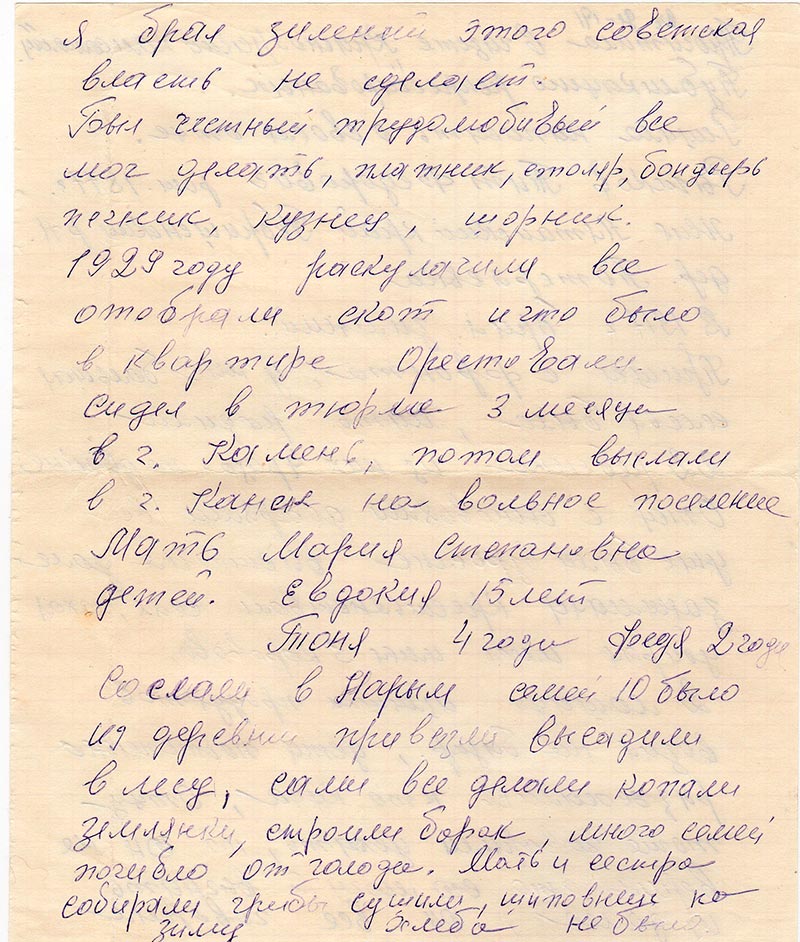 я брал зимений этого советская
власть не сделает.
Был честный трудомобивый все
мог делать, платник, столяр, бондырь
печник, кузнец, шорник.
1929 году раскулачили все
отобрали скот и что было
в квартире Орестовали.
сидел в тюрме 3 месяца
в г. Камень, потом выслали
в г. Канск на вольное поселение
Мать Мария Степановна
детей. Евдокия 15 лет
Тоня 4 года Федя 2 года
Сослали в Нарым семей 10 было
из деревни привезли высадили
в лесу, сами все делали копали
землянки, строили барак, много семей
погибло от голода. Мать и сестра
собирали грибы сушили, шиповник на
зиму хлеба не было.